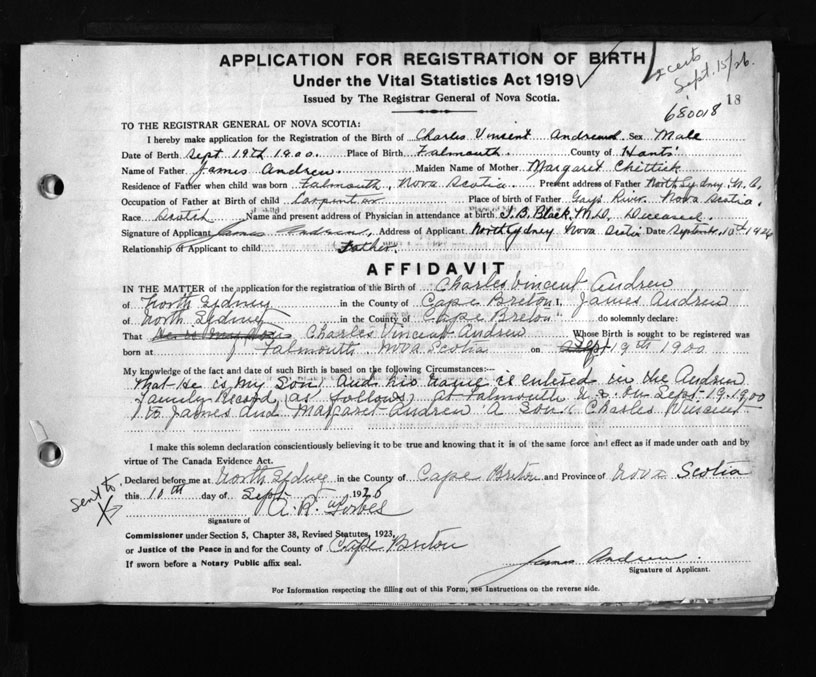 APPLICATION FOR REGISTRATION OF BIRTH
Under the Vital Statistics Act 1919
Issued by The Registrar General of Nova Scotia.
2 certs
Sept. 15/26.
18
680018
TO THE REGISTRAR GENERAL OF NOVA SCOTIA:
I hereby make application for the Registration of the Birth of Charles Vincent Andrew Sex Male
Date of Birth Sept 19th 1900. Place of Birth Falmouth. County of Hants
Name of Father James Andrew. Maiden Name of Mother Margaret Chittick
Residence of Father when child was born Falmouth, Nova Scotia. Present address of Father North Sydney. N. S.
Occupation of Father at Birth of child Carpenter Place of birth of Father Gays River. Nova Scotia.
Race British Name and present address of Physician in attendance at birth J. B. Black, M.D, Deceased.
Signature of Applicant James Andrew, Address of Applicant North Sydney Nova Scotia Date September 10th 1926
Relationship of Applicant to child Father.
AFFIDAVIT
IN THE MATTER of the application for the registration of the Birth of Charles Vincent Andrew
of North Sydney in the County of Cape Breton I, James Andrew
of North Sydney in the County of Cape Breton do solemnly declare:
That Charles Vincent Andrew Whose Birth is sought to be registered was
born at Falmouth Nova Scotia on Sept 19th 1900
My knowledge of the fact and date of such Birth is based on the following Circumstances:--
That He is my Son. And his name is entered in the Andrew
Family Record (as follows) At Falmouth N. S. On Sept-19-1900
to James and Margaret Andrew A Son Charles Vincent
I make this solemn declaration conscientiously believing it to be true and knowing that it is of the same force and effect as if made under oath and by
virtue of The Canada Evidence Act.
Declared before me at North Sidney in the County of Cape Breton and Province of Nova Scotia
Sent to
X
this 10th day of Sept 1926
A. R. Forbes
Signature of
Commissioner under Section 5, Chapter 38, Revised Statutes, 1923,
or Justice of the Peace in and for the County of Cape Breton
If sworn before a Notary Public affix seal.
James Andrew.
Signature of Applicant.
For Information respecting the filling out of this Form, see Instructions on the reverse side.